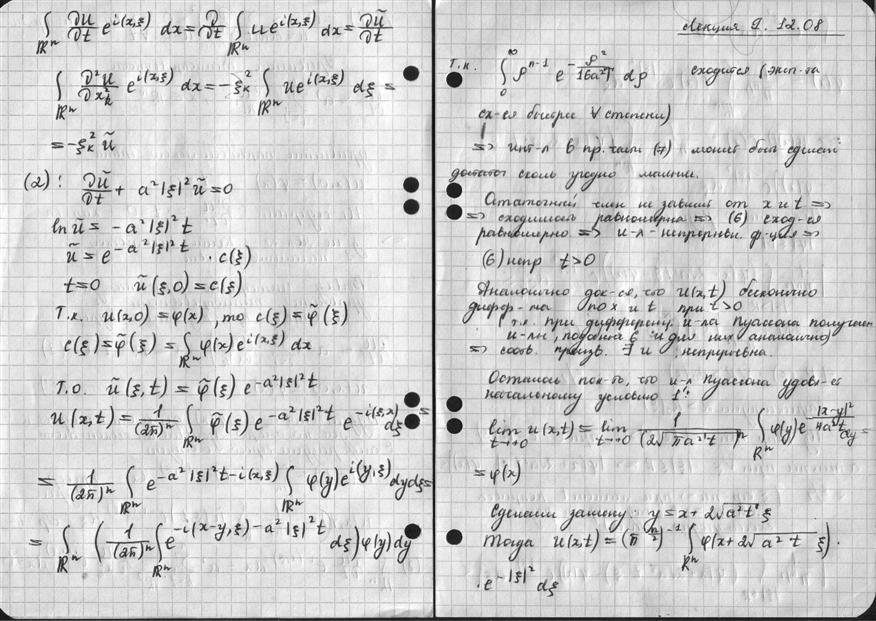 ∫_{ℝⁿ} ∂u/∂t e^{i(x,ξ)} dx = ∂/∂t ∫_{ℝⁿ} u e^{i(x,ξ)} dx = ∂ũ/∂t
∫_{ℝⁿ} ∂²u/∂x_k² e^{i(x,ξ)} dx = -ξ_k² ∫_{ℝⁿ} u e^{i(x,ξ)} dξ =
= -ξ_k² ũ
(2): ∂ũ/∂t + a²|ξ|² ũ = 0
ln ũ = -a²|ξ|² t
ũ = e^{-a²|ξ|² t} · c(ξ)
t=0 ũ(ξ,0) = c(ξ)
Т.к. u(x,0) = φ(x), то c(ξ) = φ̃(ξ)
c(ξ) = φ̃(ξ) = ∫_{ℝⁿ} φ(x) e^{i(x,ξ)} dx
Т.о. ũ(ξ,t) = φ̃(ξ) e^{-a²|ξ|² t}
u(x,t) = 1/(2π)ⁿ ∫_{ℝⁿ} φ̃(ξ) e^{-a²|ξ|² t} e^{-i(ξ,x)} dξ =
= 1/(2π)ⁿ ∫_{ℝⁿ} e^{-a²|ξ|² t - i(x,ξ)} ∫_{ℝⁿ} φ(y) e^{i(y,ξ)} dy dξ =
= ∫_{ℝⁿ} (1/(2π)ⁿ ∫_{ℝⁿ} e^{-i(x-y,ξ) - a²|ξ|² t} dξ) φ(y) dy
Лекция 9. 12.08
т.к. ∫_0^∞ ρ^{n-1} e^{-ρ²/16a²T} dρ сходится (эксп-та
сх-ся быстрее ∀ степени)
=> инт-л в пр. части (7) может быть сделан
достаточ сколь угодно малым.
Остаточный член не зависит от x и t =>
=> сходимость равномерна => (6) сход-ся
равномерно => и-л - непрерывн. ф-ция =>
(6) непр t>0
Аналогично док-ся, что u(x,t) бесконечно
дифф-ма по x и t при t>0
т.к. при дифференц. и-ла Пуассона получаем
и-лы, подобн 6 и для них аналогично
=> соотв. произв. ∃ и непрерывна.
Осталось пок-ть, что и-л Пуассона удовл-ет
начальному условию 1':
lim_{t→+0} u(x,t) = lim_{t→0} 1/(2√(πa²t))ⁿ ∫_{Rⁿ} φ(y) e^{-|x-y|²/4a²t} dy =
= φ(x)
Сделаем замену: y = x + 2√(a²t) ξ
Тогда u(x,t) = (π^{n/2})^{-1} ∫_{Rⁿ} φ(x + 2√(a²t) ξ) ·
· e^{-|ξ|²} dξ